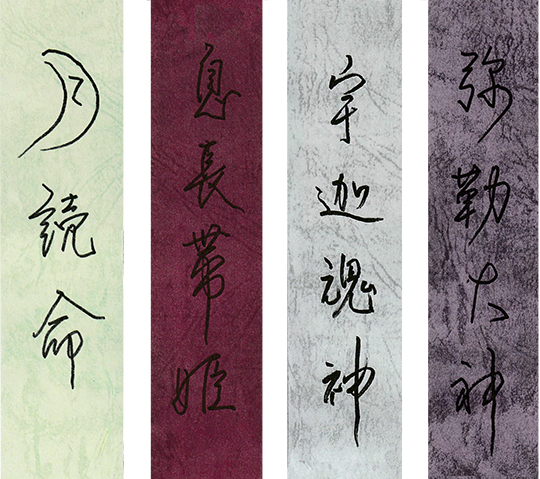 弥勒大神
宇迦魂神
息長帯姫
月読命